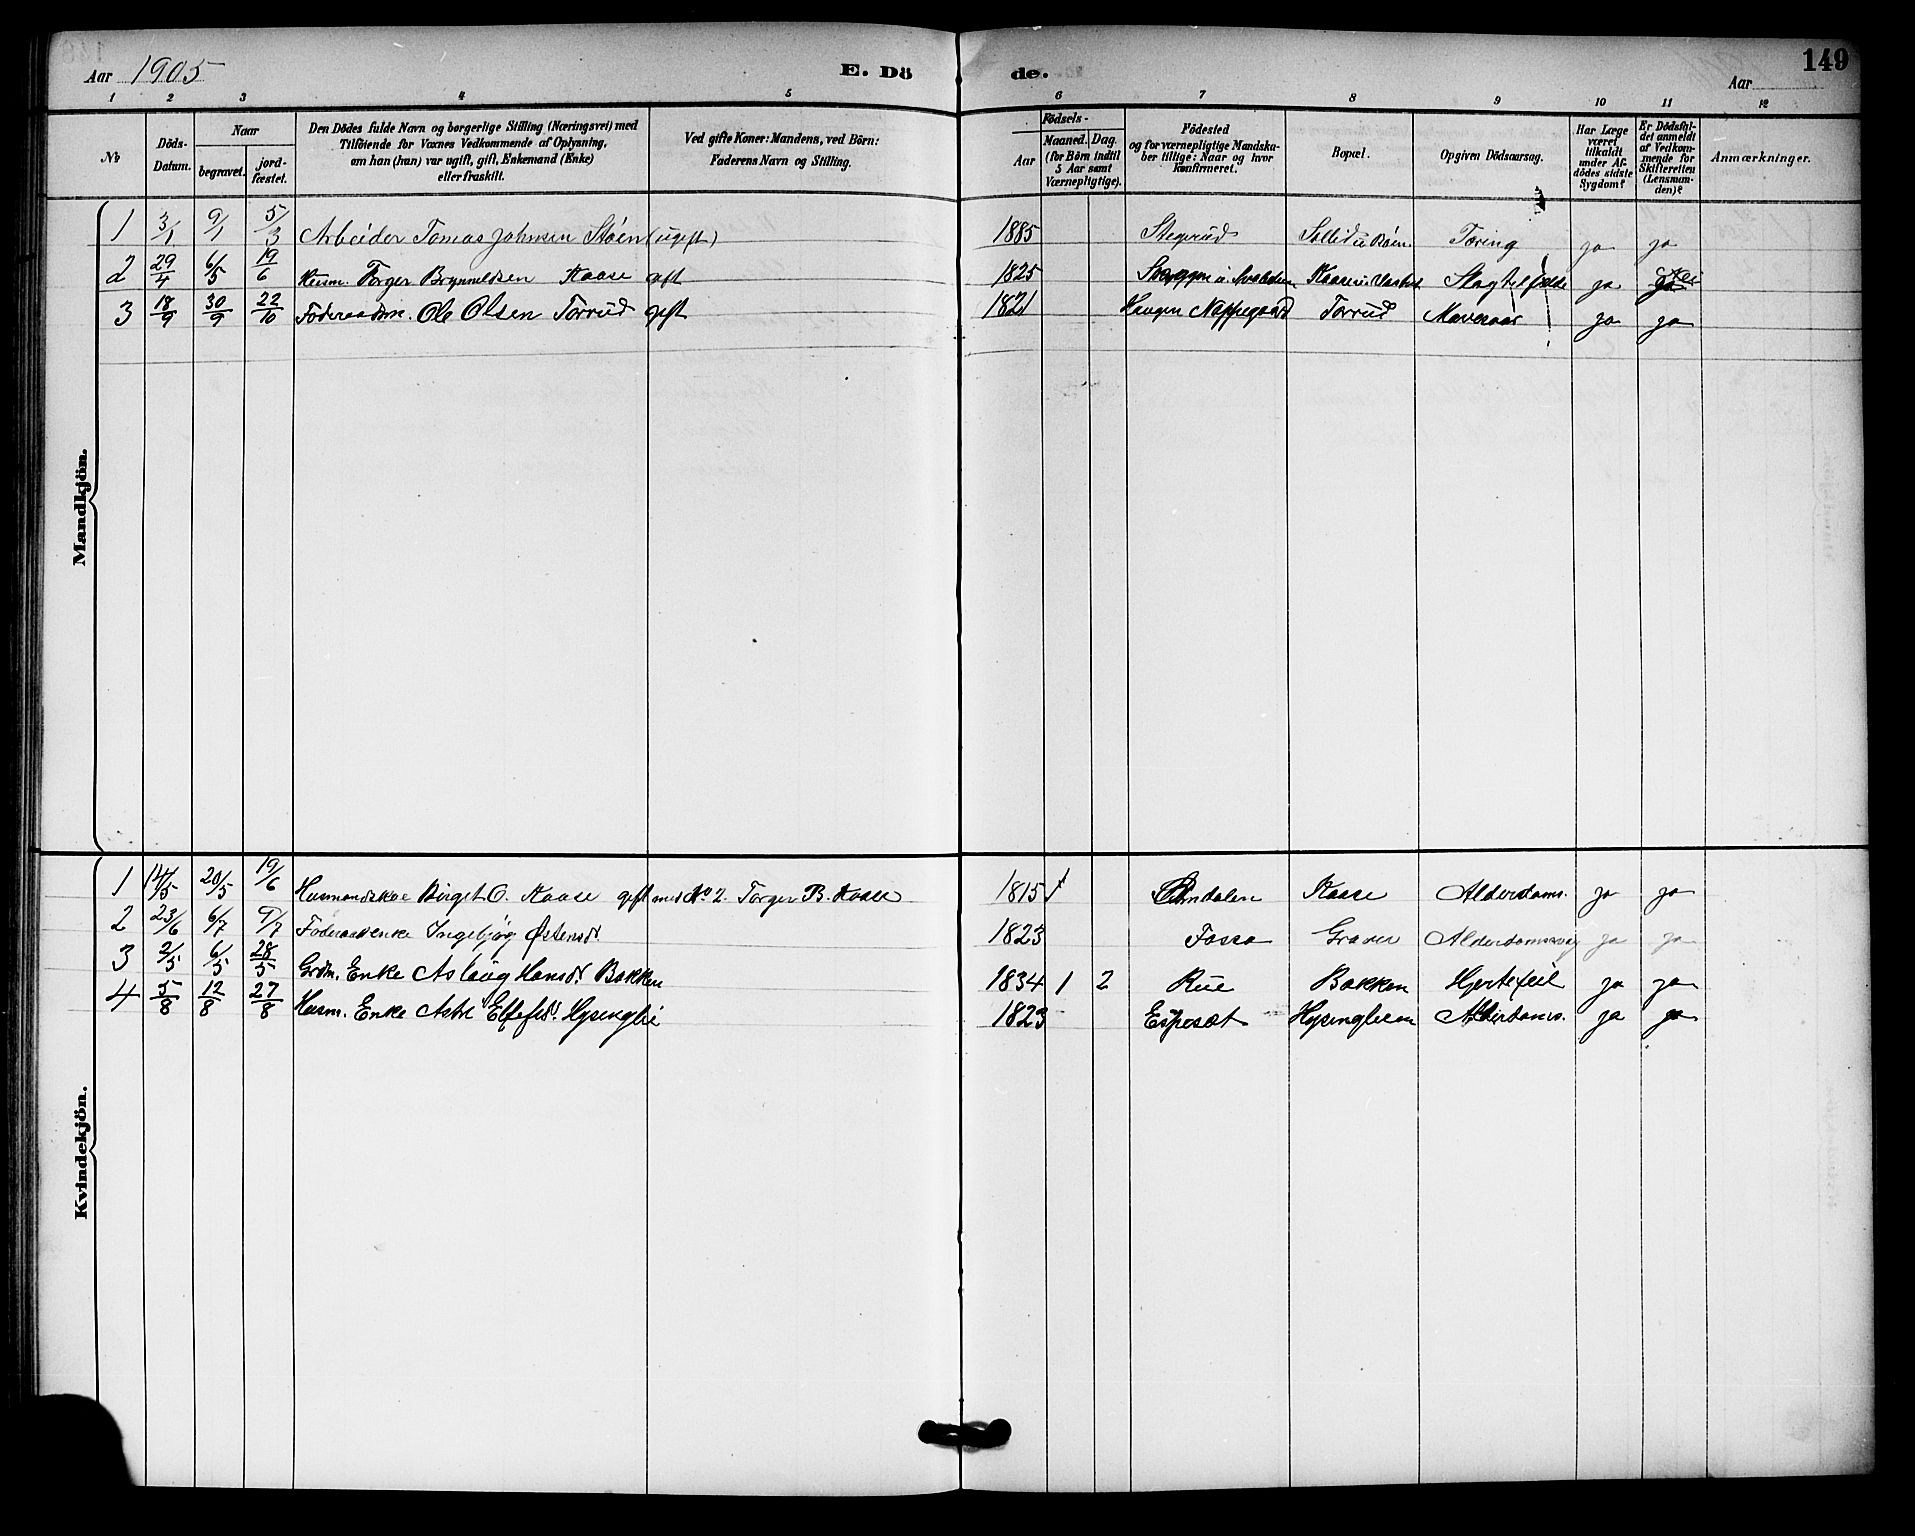 Aar 1905
E. Döde.
Aar
149
1 2 3 4 5 6 7 8 9 10 11 12
No
Döds-Datum.
Naar
begravet.
jordfæstet.
Den Dödes fulde Navn og borgerlige Stilling (Næringsvei) med Tilföiende for Voxnes Vedkommende af Oplysning, om han (hun) var ugift, gift, Enkemand (Enke) eller fraskilt.
Ved gifte Koner: Mandens, ved Börn: Faderens Navn og Stilling.
Födsels-
Aar
Maaned. Dag.
(for Börn indtil 5 Aar samt Værnepligtige).
Födested og for værnepligtige Mandskaber tillige: Naar og hvor Konfirmeret.
Bopæl.
Opgiven Dödsaarsag.
Har Læge været tilkaldt under Afdödes sidste Sygdom?
Er Dödsfaldet anmeldt af Vedkommende for Skifteretten (Lensmanden)?
Anmærkninger.
Mandkjön.
1 3/1 9/1 5/3 Arbeider Tomas Johnsen Støen (ugift) 1885 Stegerud Sollid u. Støen Tæring ja ja
2 29/4 6/5 19/6 Husm. Torger Brynnildsen Kaase gift 1825 Slagtilfælde ja ja
3 18/9 30/9 22/10 Føderaadsm. Ole Olsen Torrud gift 1821 Haugen Nappegaard Torrud Mavesaar ja ja
Kvindekjön.
1 14/5 20/5 19/6 Husmandskone Birget O. Kaase gift med No 2. Torger B. Kaase 1815 Kaase Alderdoms. ja ja
2 23/6 6/7 9/7 Føderaadsenke Ingebjøg Østensdt 1823 Fossa Graver Alderdomssvag ja ja
3 2/5 6/5 28/5 Grdm. Enke Aslaug Hansdt. Bakken 1834 1 2 Rue Bakken Hjertefeil ja ja
4 5/8 12/8 27/8 Husm. Enke Astri Elfefsdt. Hysinglie 1823 Espeset Hysinglien Alderdoms. ja ja